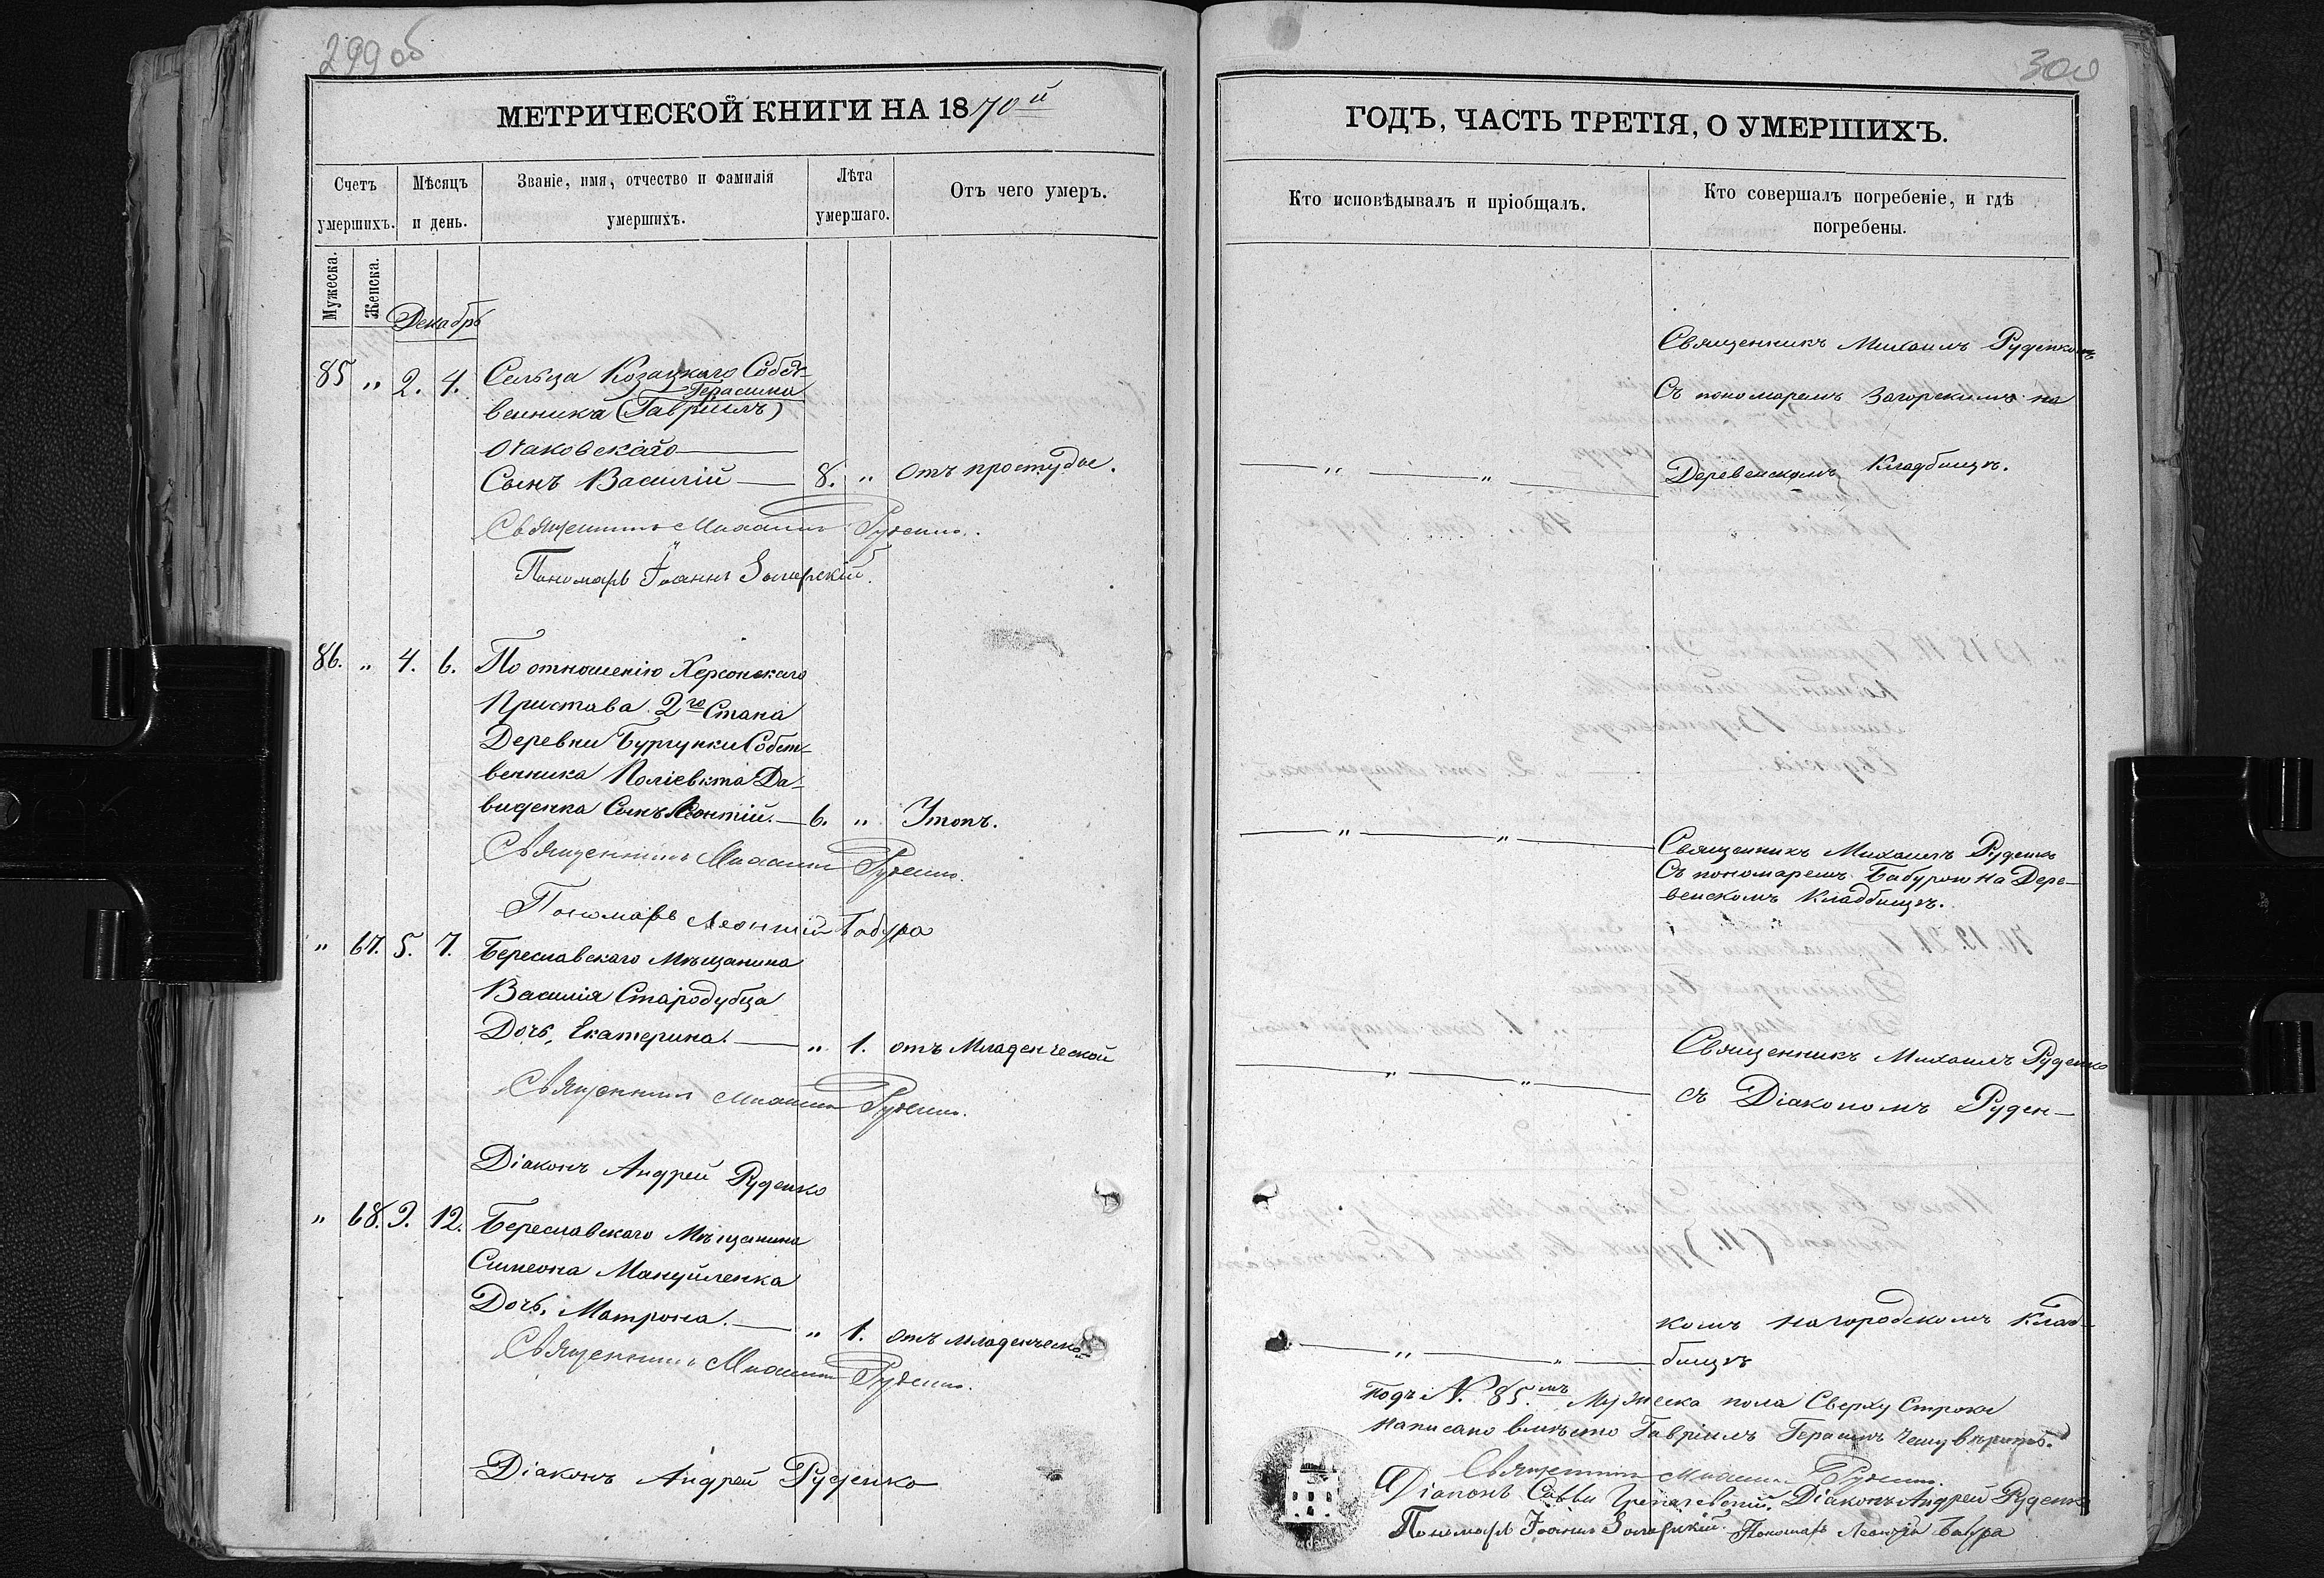 299 об
МЕТРИЧЕСКОЙ КНИГИ НА 1870й
Счетъ умершихъ.
Мѣсяцъ и день.
Званіе, имя, отчество и фамилія умершихъ.
Лѣта умершаго.
Отъ чего умеръ.
Мужеска.
Женска.
Декабрь
85 " 2. 4. Сельца Козацкаго Собст-
Герасима
венника (Гавріилъ)
Очаковскаго
Сынъ Василій — 8. " Отъ простуды.
Священникъ Михаилъ Руденко.
Пономарь Іоаннъ Загорскій.
86. " 4. 6. По отношенію Херсонскаго
Пристава 2го Стана
Деревни Бургунки Собст-
венника Поліевкта Да-
виденка Сынъ Леонтій. — 6. " Утопъ.
Священникъ Михаилъ Руденко.
Пономарь Леонтій Бабура
" 67. 5. 7. Береславскаго Мѣщанина
Василія Стародубца
Дочь, Екатерина. — " 1. отъ Младенческой
Священникъ Михаилъ Руденко.
Діаконъ Андрей Руденко
" 68. 9. 12. Береславскаго Мѣщанина
Симеона Мануйленка
Дочь, Матрона. — " 1. отъ младенческой
Священникъ Михаилъ Руденко.
Діаконъ Андрей Руденко
300
ГОДЪ, ЧАСТЬ ТРЕТІЯ, О УМЕРШИХЪ.
Кто исповѣдывалъ и пріобщалъ.
Кто совершалъ погребеніе, и гдѣ
погребены.
Священникъ Михаилъ Руденко
Съ пономаремъ Загорскимъ на
— " — " — Деревенскомъ Кладбищѣ.
— " — " — Священникъ Михаилъ Руденко
Съ пономаремъ Бабурою на Дере-
венскомъ Кладбищѣ.
Священникъ Михаилъ Руденко
— " — " — съ Діакономъ Руден-
комъ на городскомъ Клад-
— " — " — бищѣ
Подъ №. 85.мъ Мужеска пола Сверху Строки
Написано вмѣсто Гавріилъ Герасимъ чему вѣрить.
Священникъ Михаилъ Руденко.
Діаконъ Савва Діаконъ Андрей Руденко
Пономарь Іоаннъ Загорскій. Пономарь Леонтій Бабура